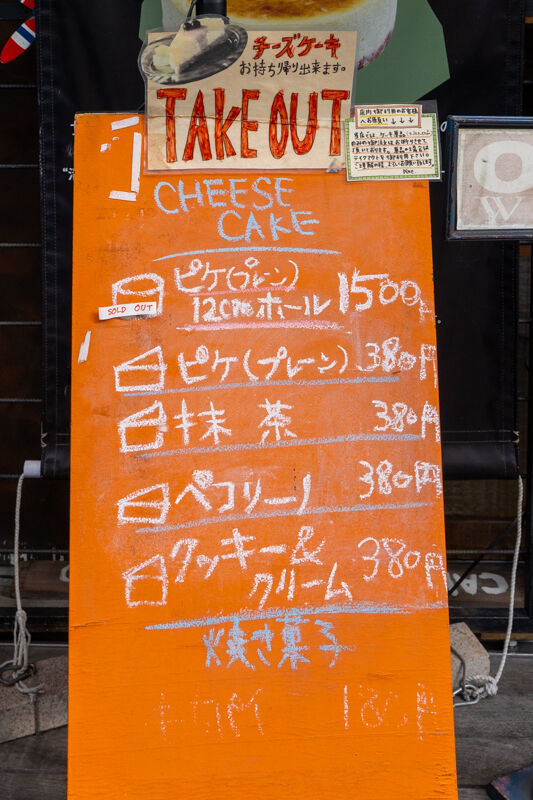 チーズケーキ
お持ち帰り出来ます。
TAKE OUT
CHEESE
CAKE
ピケ(プレーン)
12cmホール 1500円
SOLD OUT
ピケ(プレーン) 380円
抹茶 380円
ペコリーノ 380円
クッキー&
クリーム 380円
焼き菓子
180円